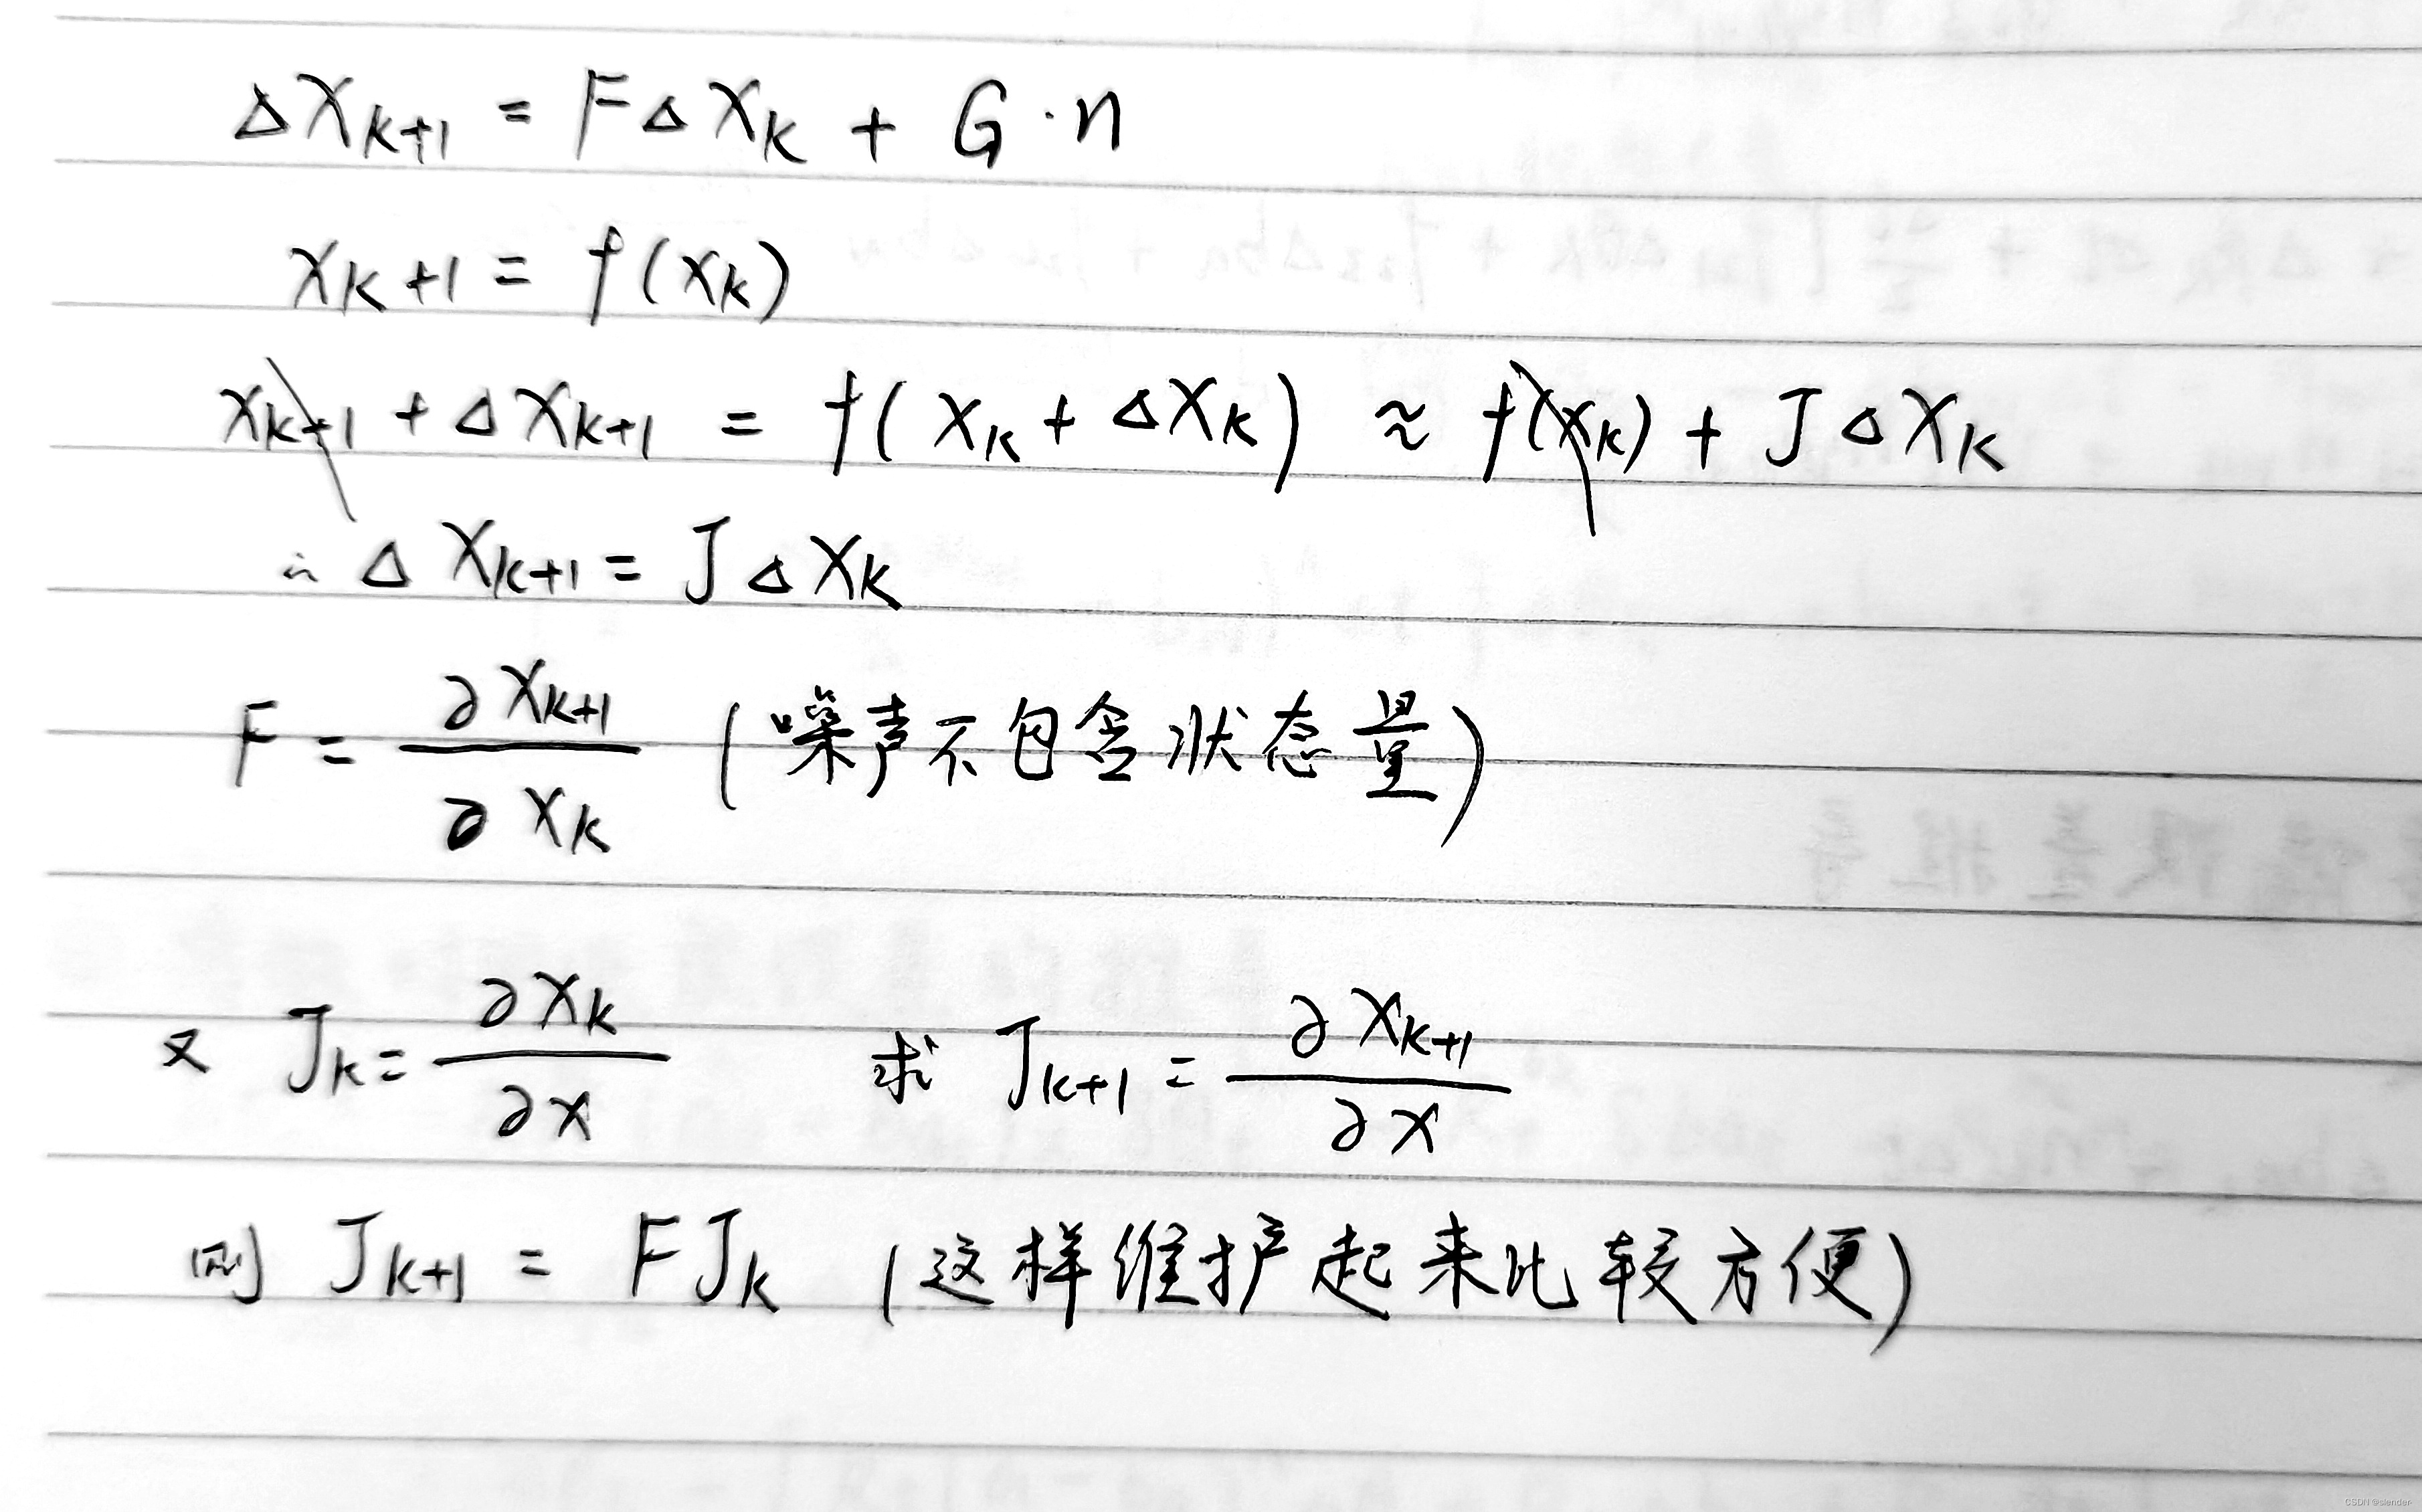 ΔX_{k+1} = FΔX_k + G·n
x_{k+1} = f(x_k)
x_{k+1} + ΔX_{k+1} = f(x_k + ΔX_k) ≈ f(x_k) + JΔX_k
∴ ΔX_{k+1} = JΔX_k
F = ∂X_{k+1} / ∂X_k (噪声不包含状态量)
又 J_k = ∂X_k / ∂x 求 J_{k+1} = ∂X_{k+1} / ∂x
则 J_{k+1} = FJ_k (这样维护起来比较方便)
CSDN @slender-